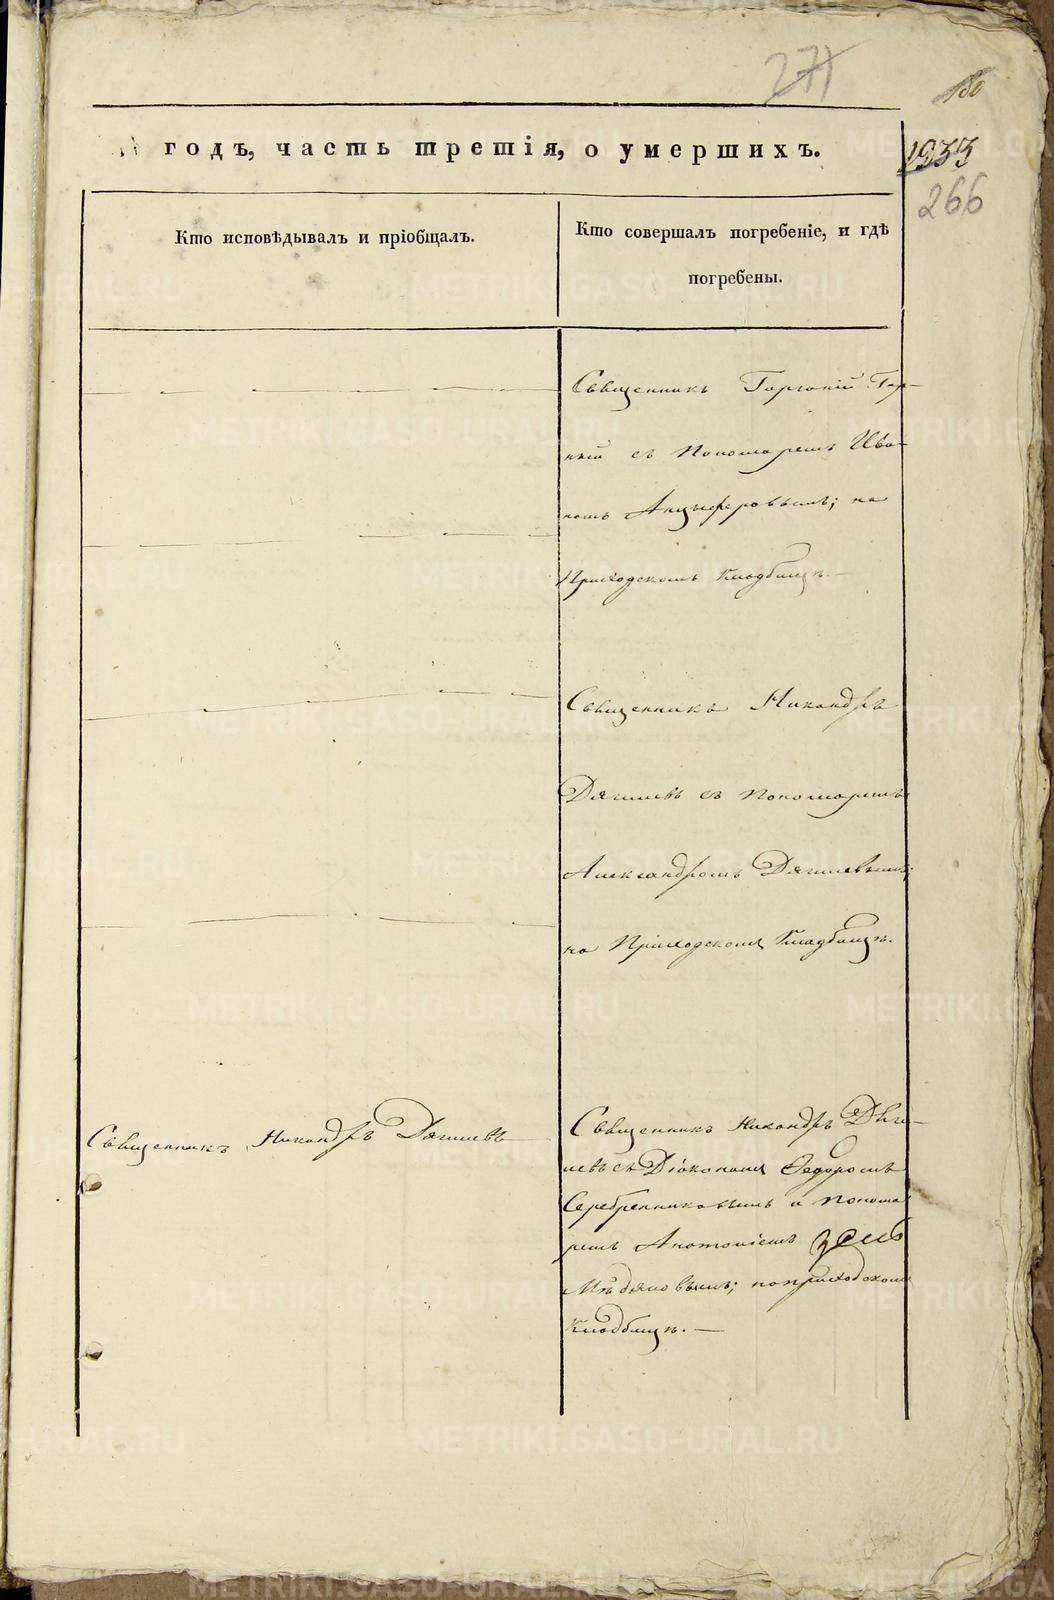 271
180
годъ, часть третія, о умершихъ.
1933
266
Кто исповѣдывалъ и пріобщалъ.
Кто совершалъ погребеніе, и гдѣ
погребены.
Священникъ Горгоній Гор-
кій съ Пономаремъ Ива-
номъ Анцыферовымъ; на
Приходскомъ Кладбищѣ.—
Священникъ Никандръ
Дягилевъ съ Пономаремъ
Александромъ Дягилевымъ;
на Приходскомъ Кладбищѣ.
Священникъ Никандръ Дягилевъ
Священникъ Никандръ Дяги-
левъ съ Діакономъ Федоромъ
Серебренниковымъ и Понома
ремъ Анатоліемъ
на приходскомъ
Кладбищѣ.—
METRIKI.GASO-URAL.RU